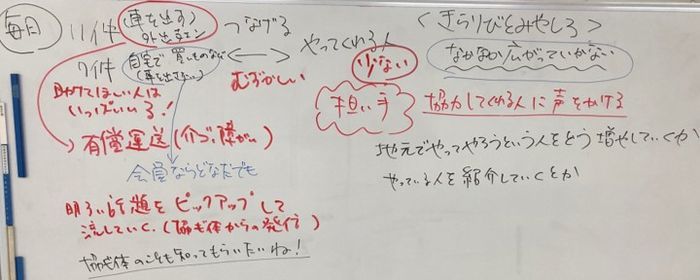 毎月
11件 (車を出す) 外出支エン
つなげる
7件 自宅で 買いものなど (車を出さない)
やってくれる人
少ない
むずかしい
助けてほしい人は
いっぱいいる!
有償運送(介ゴ、障がい)
会員ならどなたでも
明るい話題をピックアップして
流していく。(協ギ体からの発信)
協ギ体のことも知ってもらいたいね!
<きらりびとみやしろ>
なかなか広がっていかない
担い手
協力してくれる人に声をかける
地元でやってやろうという人をどう増やしていくか
やっている人を紹介していくとか